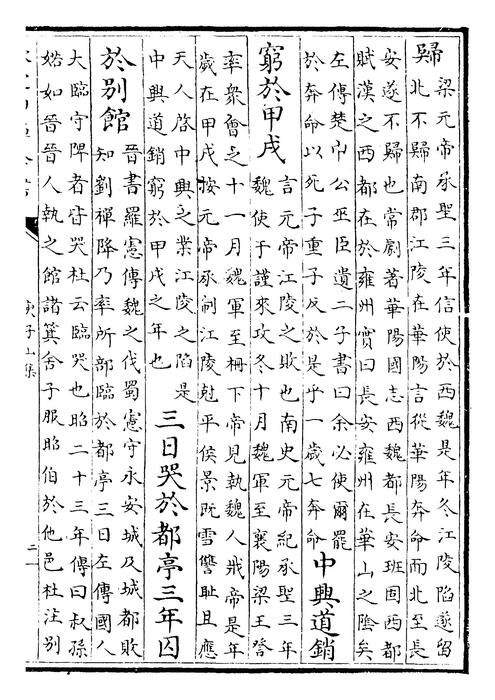 歸
梁元帝承聖三年信使於西魏是年冬江陵陷遂留
北不歸南郡江陵在華陽言從華陽奔命而北至長
安遂不歸也常劇著華陽國志西魏都長安班固西都
賦漢之西都在於雍州實曰長安雍州在華山之陰矣
左傳楚巾公巫臣遺二子書曰余必使爾罷
於奔命以死子重子反於是乎一歲七奔命
中興道銷
窮於甲戌
言元帝江陵之敗也南史元帝紀承聖三年
魏使于謹來攻冬十月魏軍至襄陽梁王詧
率衆會之十一月魏軍至柵下帝見執魏人戕帝是年
歲在甲戌按元帝承制江陵尅平侯景既雪讐耻且應
天人啓中興之業江陵之陷是
中興道銷窮於甲戌之年也
三日哭於都亭三年囚
於別館
晉書羅憲傳魏之伐蜀憲守永安城及城都敗
知劉禪降乃率所部臨於都亭三日左傳國人
大臨守陴者皆哭杜云臨哭也昭二十三年傳曰叔孫
婼如晉晉人執之館諸箕舍子服昭伯於他邑杜注別
庾子山集
二